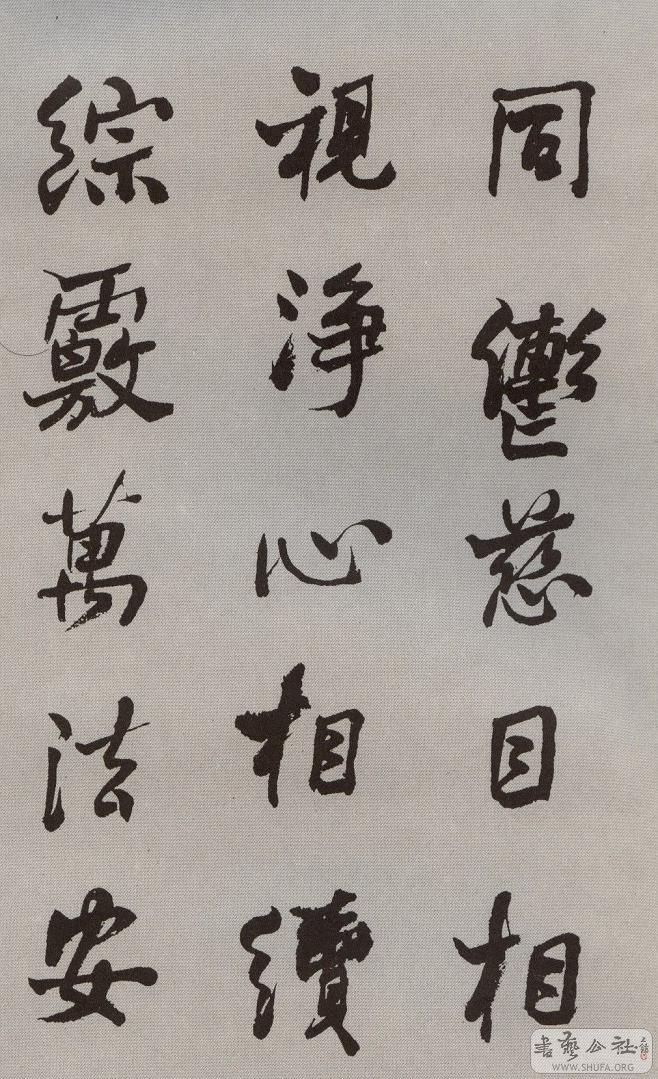 同慈目相
視淨心相續
綜覈萬法安
書藝公社
WWW.SHUFA.ORG